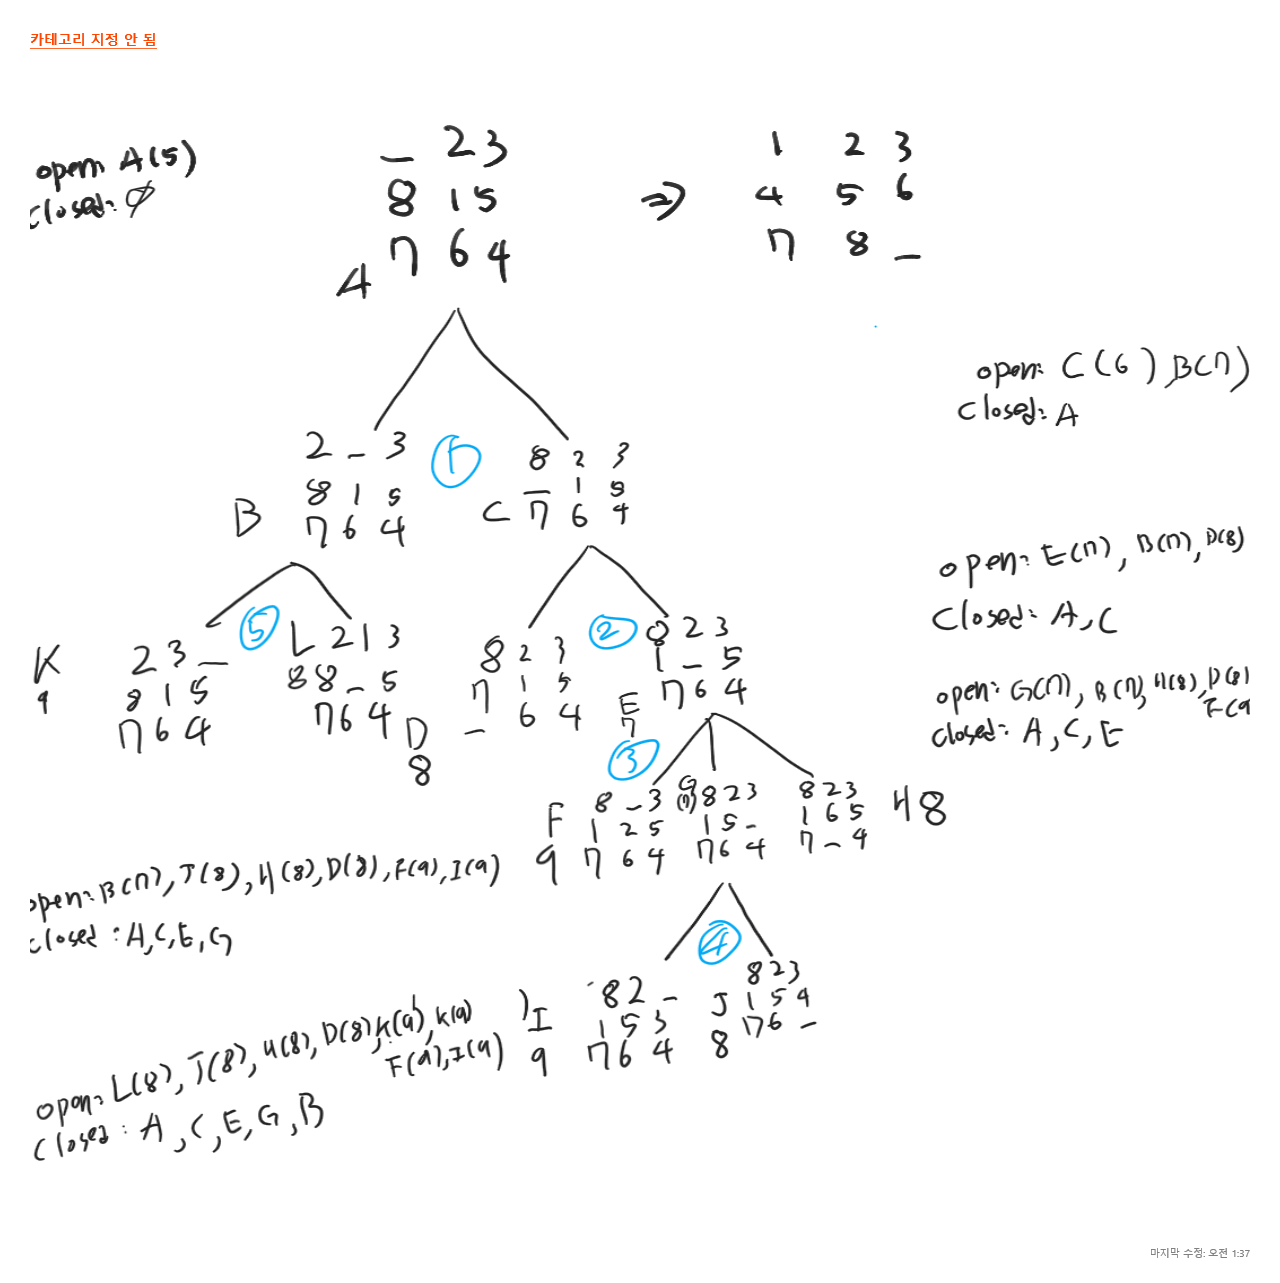 카테고리 지정 안 됨
open: A(5)
closed: ∅
_ 2 3
8 1 5
7 6 4
A
⇒
1 2 3
4 5 6
7 8 _
open: C(6), B(7)
closed: A
①
2 _ 3
8 1 5
7 6 4
B
8 2 3
_ 1 5
7 6 4
C
open: E(7), B(7), D(8)
closed: A, C
⑤
K
9
2 3 _
8 1 5
7 6 4
L 2 1 3
8 8 _ 5
7 6 4
②
8 2 3
7 1 5
_ 6 4
D
8
8 2 3
1 _ 5
7 6 4
E
7
open: G(7), B(7), H(8), D(8)
F(9
closed: A, C, E
③
F
9
8 _ 3
1 2 5
7 6 4
G
(7)
8 2 3
1 5 _
7 6 4
8 2 3
1 6 5
7 _ 4
H 8
open: B(7), J(8), H(8), D(8), F(9), I(9)
closed: A, C, E, G
④
I
9
8 2 _
1 5 3
7 6 4
J
8
8 2 3
1 5 4
7 6 _
open: L(8), J(8), H(8), D(8), K(9), K(9)
F(9), I(9)
closed: A, C, E, G, B
마지막 수정: 오전 1:37